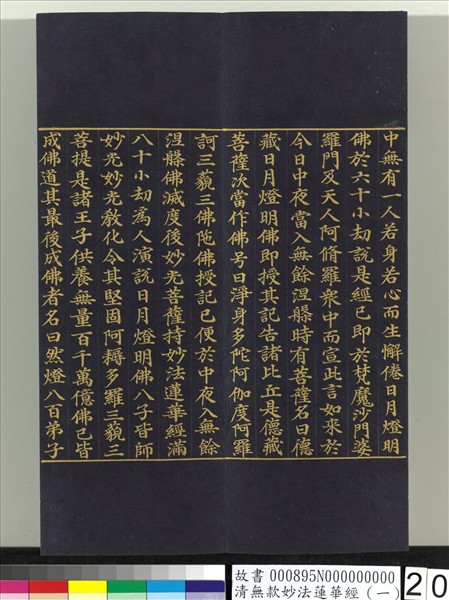 中無有一人若身若心而生懈倦日月燈明
佛於六十小劫說是經已即於梵魔沙門婆
羅門及天人阿脩羅眾中而宣此言如來於
今日中夜當入無餘涅槃時有菩薩名曰德
藏日月燈明佛即授其記告諸比丘是德藏
菩薩次當作佛号曰淨身多陀阿伽度阿羅
訶三藐三佛陁佛授記已便於中夜入無餘
涅槃佛滅度後妙光菩薩持妙法蓮華經滿
八十小劫為人演說日月燈明佛八子皆師
妙光妙光教化令其堅固阿耨多羅三藐三
菩提是諸王子供養無量百千萬億佛已皆
成佛道其最後成佛者名曰然燈八百弟子
故書 000895N000000000
清無款妙法蓮華經(一)
20